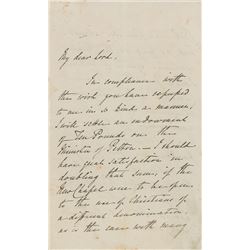 My dear Lord,
In compliance with
the wish you have expressed
to me in so kind a manner,
I will settle an endowment
of Ten Pounds on the
Minister of
I should
have great satisfaction in
doubling that sum, if the
New Chapel were to be open
to the use of Christians of
a different denomination,
as is the case with many